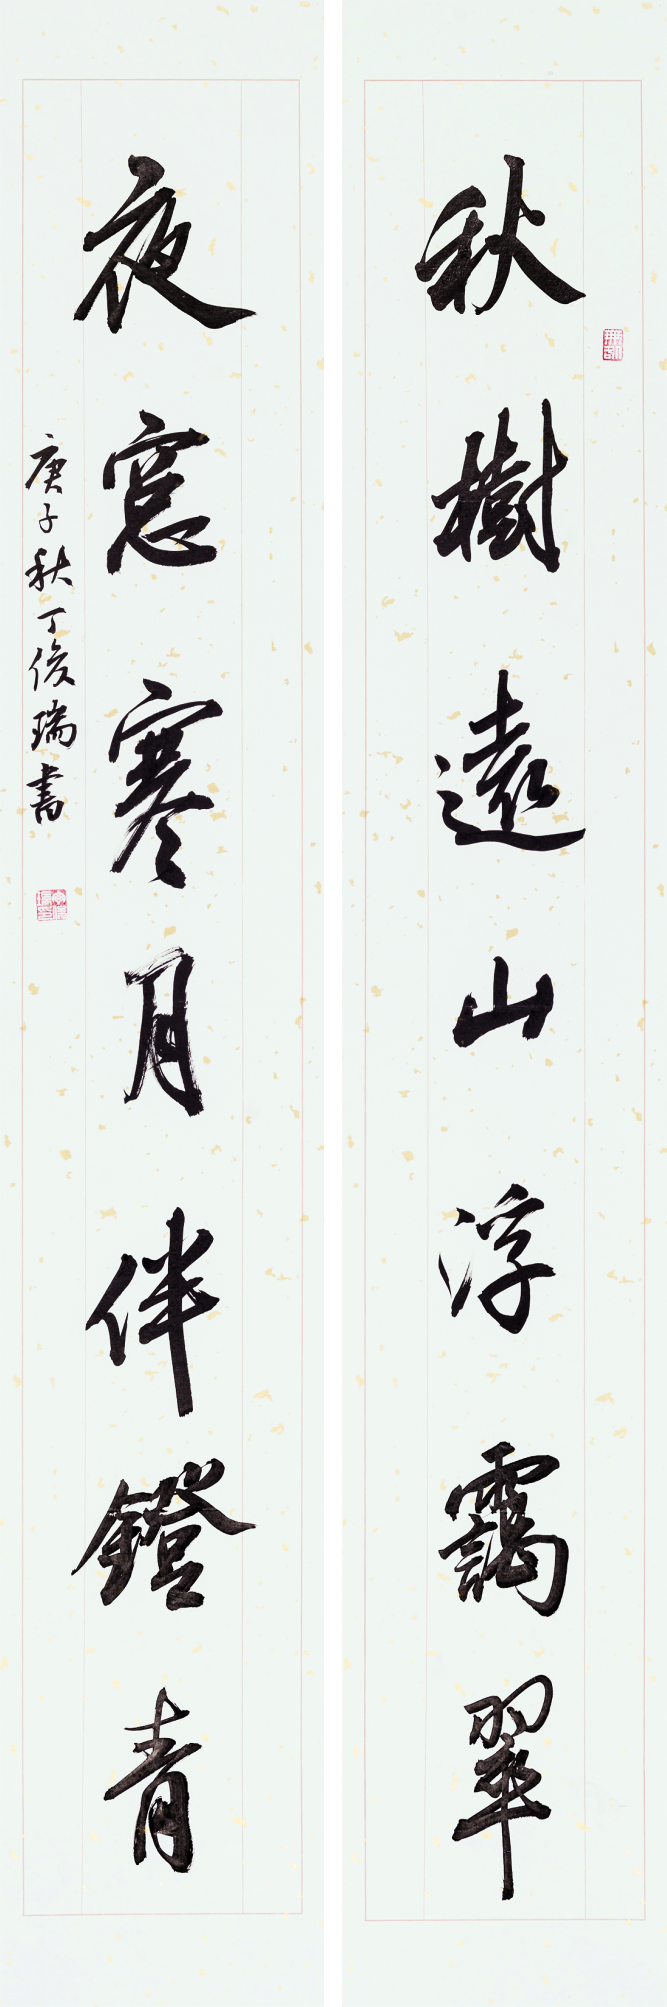 秋樹遠山浮靄翠
夜窓寒月伴鐙青
庚子秋丁俊瑞書